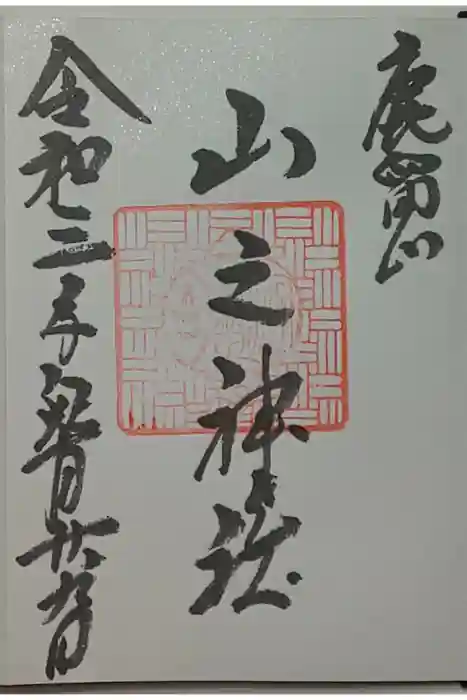 鹿留山
山之神社
令和三年 月廿九日